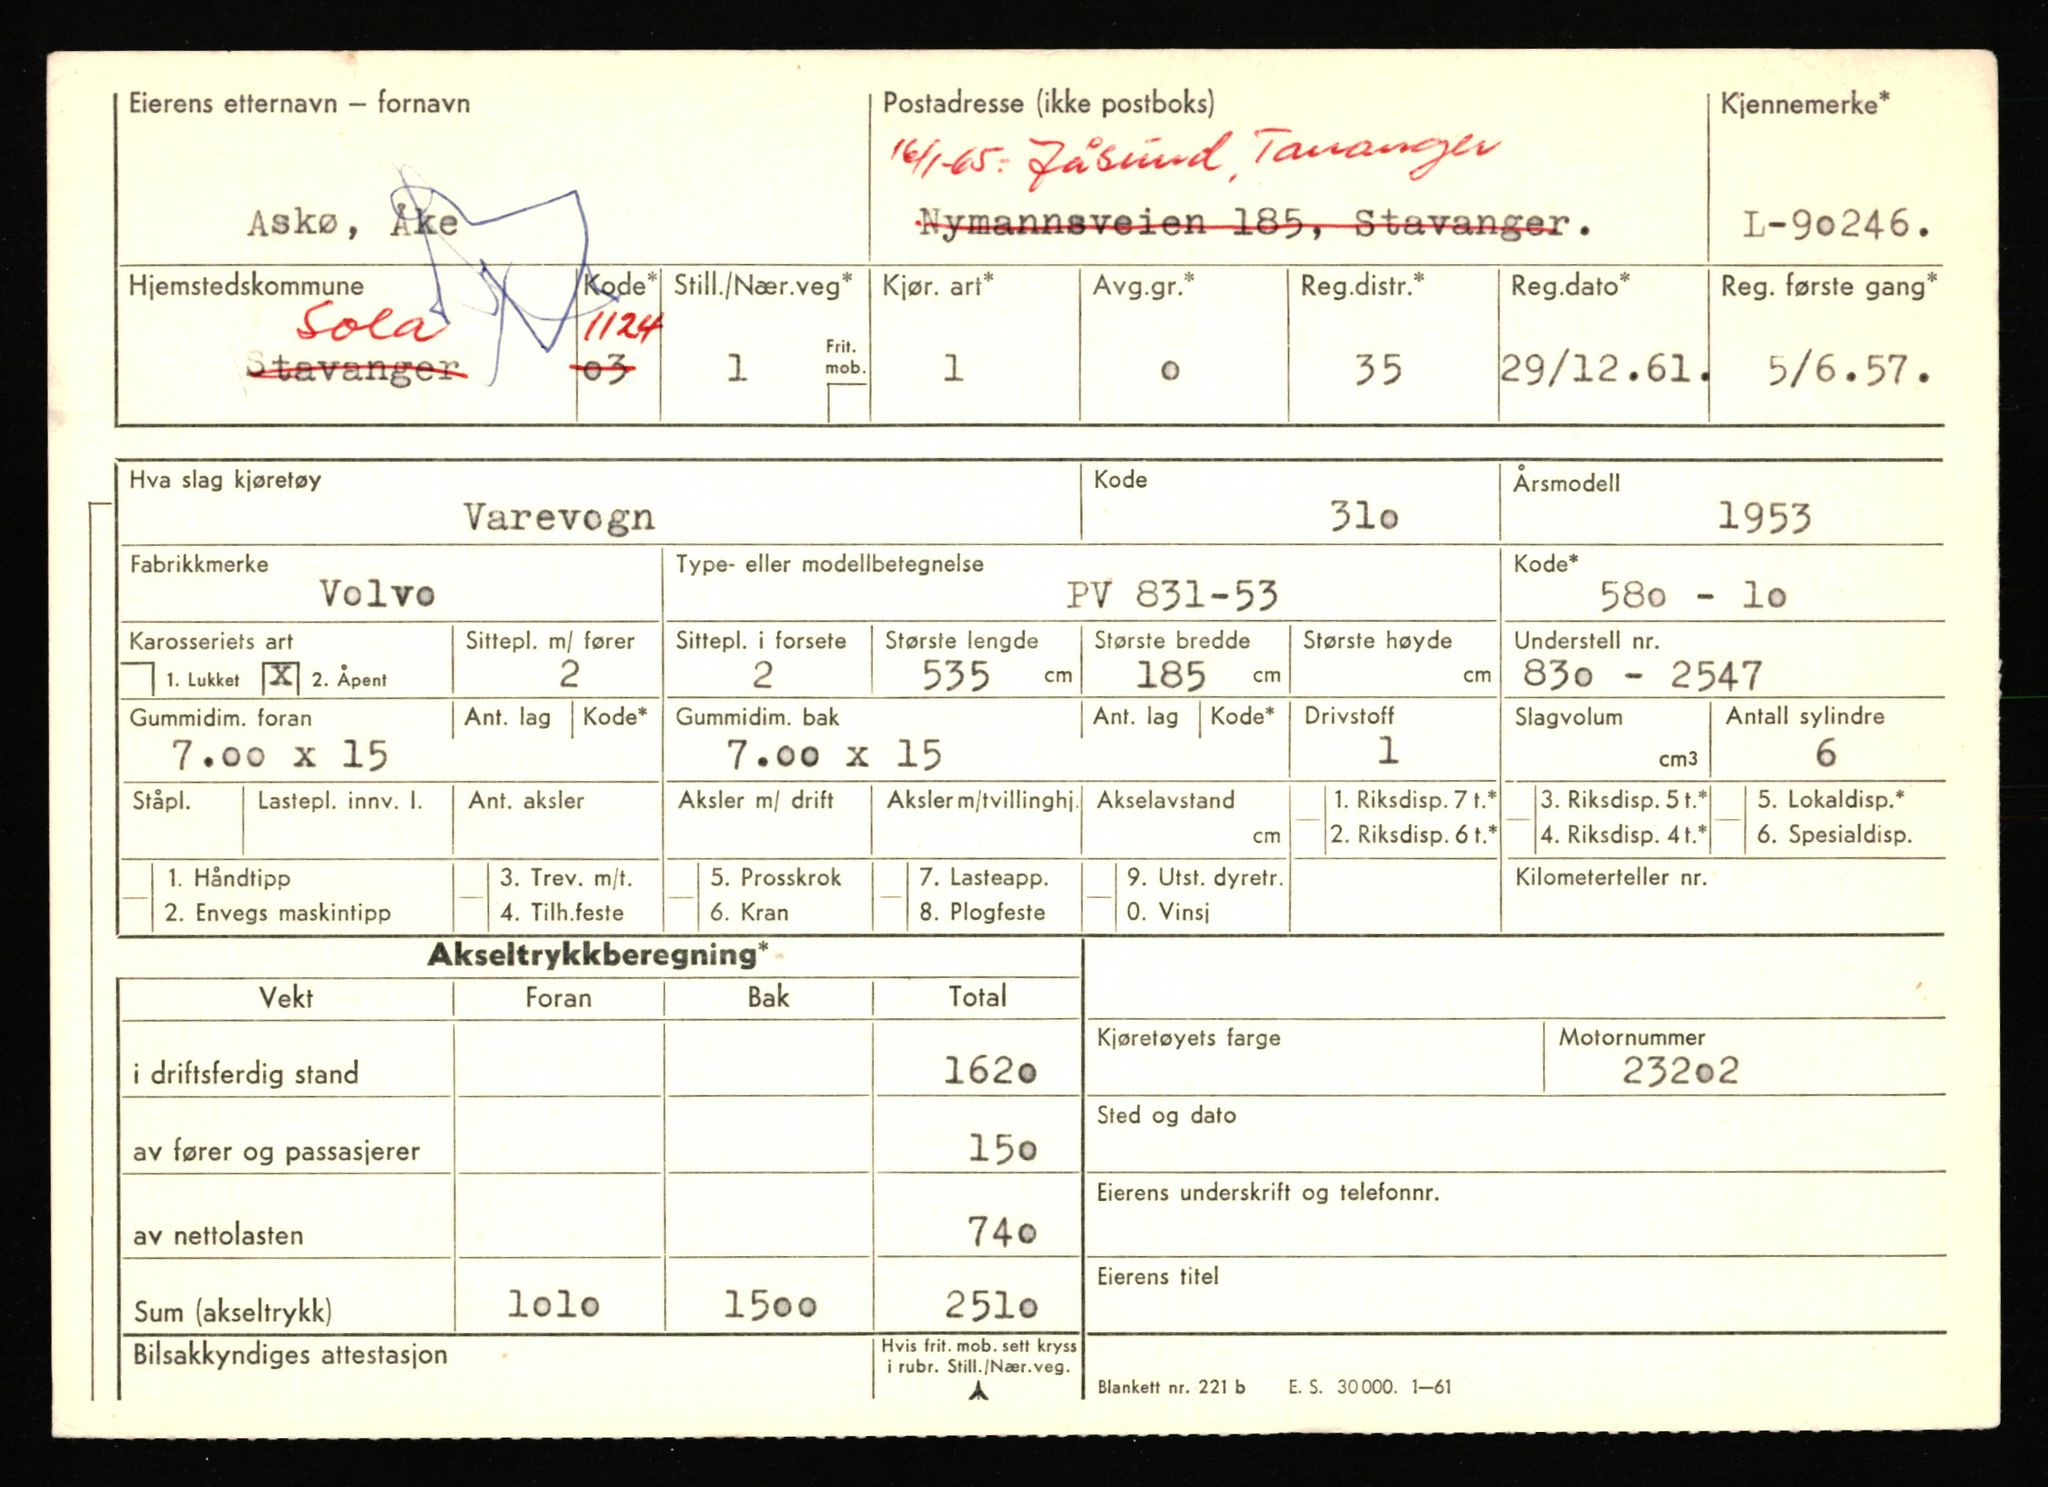 Eierens etternavn – fornavn Postadresse (ikke postboks) Kjennemerke*
16/1-65: Jåsund, Tananger
Askø, Åke Nymannsveien 185, Stavanger. L-90246.
Hjemstedskommune Kode* Still./Nær.veg* Kjør. art* Avg.gr.* Reg.distr.* Reg.dato* Reg. første gang*
Sola 1124
Frit. mob.
Stavanger 03 1 1 0 35 29/12.61. 5/6.57.
Hva slag kjøretøy Kode Årsmodell
Varevogn 310 1953
Fabrikkmerke Type- eller modellbetegnelse Kode*
Volvo PV 831-53 580 - 10
Karosseriets art Sittepl. m/ fører Sittepl. i forsete Største lengde Største bredde Største høyde Understell nr.
1. Lukket X 2. Åpent 2 2 535 cm 185 cm cm 830 - 2547
Gummidim. foran Ant. lag Kode* Gummidim. bak Ant. lag Kode* Drivstoff Slagvolum Antall sylindre
7.00 x 15 7.00 x 15 1 cm3 6
Ståpl. Lastepl. innv. l. Ant. aksler Aksler m/ drift Aksler m/tvillinghj. Akselavstand 1. Riksdisp. 7 t.* 3. Riksdisp. 5 t.* 5. Lokaldisp.*
cm 2. Riksdisp. 6 t.* 4. Riksdisp. 4 t.* 6. Spesialdisp.
1. Håndtipp 3. Trev. m/t. 5. Prosskrok 7. Lasteapp. 9. Utst. dyretr. Kilometerteller nr.
2. Envegs maskintipp 4. Tilh.feste 6. Kran 8. Plogfeste 0. Vinsj
Akseltrykkberegning*
Vekt Foran Bak Total
Kjøretøyets farge Motornummer
i driftsferdig stand 1620 23202
Sted og dato
av fører og passasjerer 150
Eierens underskrift og telefonnr.
av nettolasten 740
Eierens titel
Sum (akseltrykk) 1010 1500 2510
Bilsakkyndiges attestasjon Hvis frit. mob. sett kryss
i rubr. Still./Nær.veg.
Blankett nr. 221 b E. S. 30000. 1–61